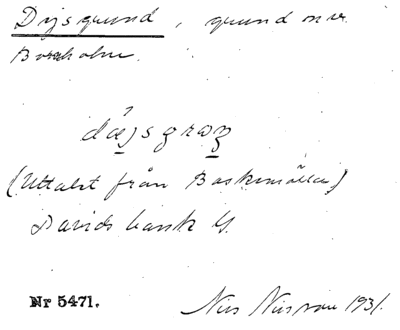 Dijsgrund, grund onv.
Bornholm.
(Uttalet från Baskemölla)
Davids bank S.
Nr 5471.
Nils Nilsson 1931.